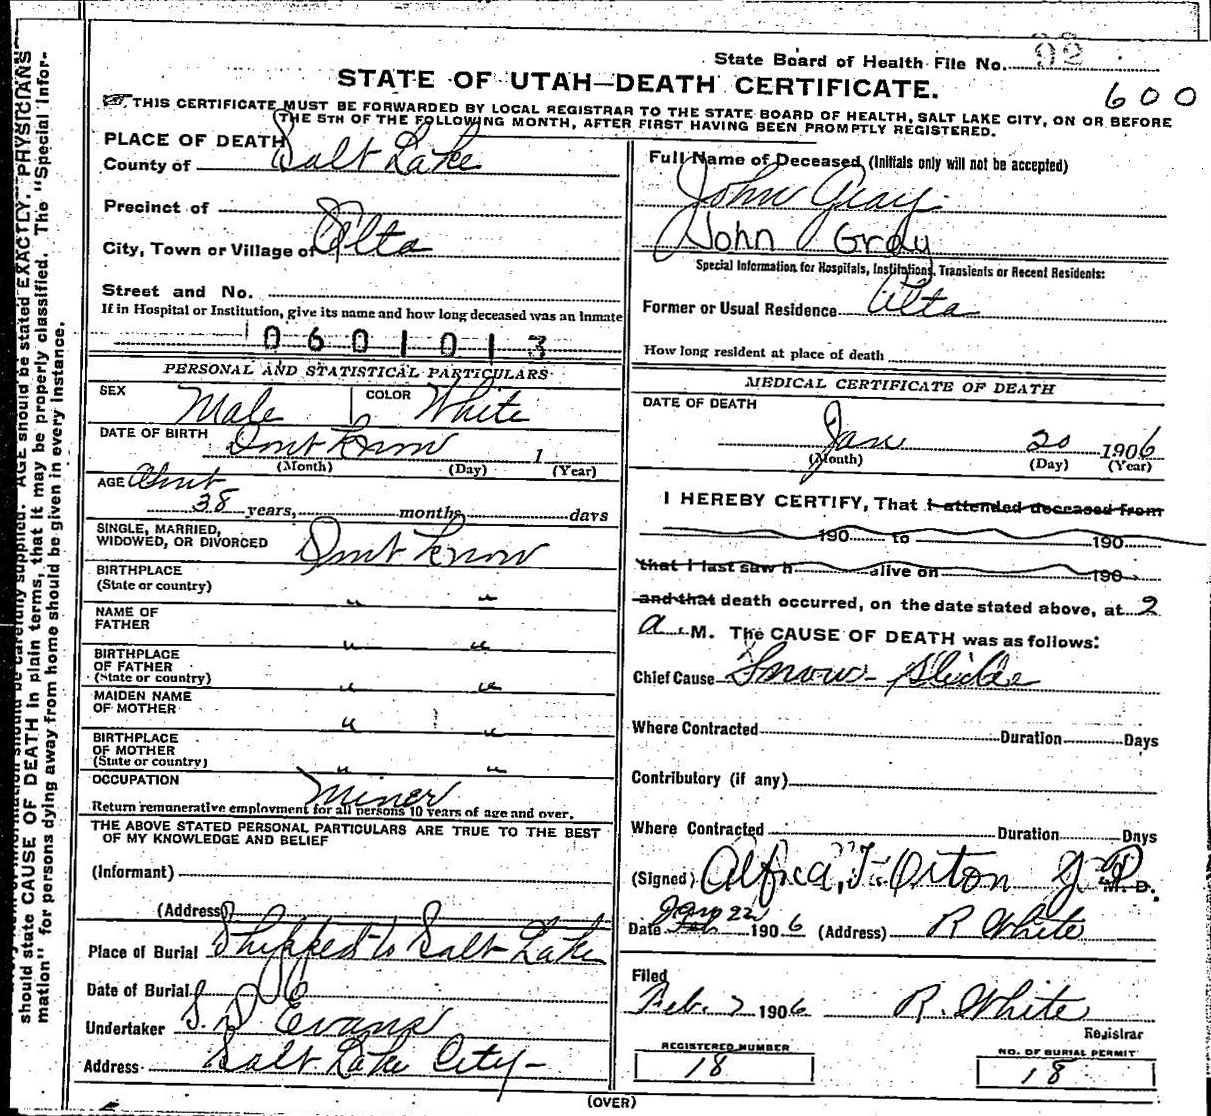 State Board of Health File No. 92
STATE OF UTAH—DEATH CERTIFICATE.
600
THIS CERTIFICATE MUST BE FORWARDED BY LOCAL REGISTRAR TO THE STATE BOARD OF HEALTH, SALT LAKE CITY, ON OR BEFORE
THE 5TH OF THE FOLLOWING MONTH, AFTER FIRST HAVING BEEN PROMPTLY REGISTERED.
PLACE OF DEATH
County of Salt Lake
Precinct of
City, Town or Village of Alta
Street and No.
If in Hospital or Institution, give its name and how long deceased was an inmate
0601013
PERSONAL AND STATISTICAL PARTICULARS
SEX Male COLOR White
DATE OF BIRTH Dont Know 1
(Month) (Day) (Year)
AGE About
38 years, months days
SINGLE, MARRIED,
WIDOWED, OR DIVORCED Dont Know
BIRTHPLACE
(State or country) " "
NAME OF
FATHER " "
BIRTHPLACE
OF FATHER
(State or country) " "
MAIDEN NAME
OF MOTHER " "
BIRTHPLACE
OF MOTHER
(State or country) " "
OCCUPATION Miner
Return remunerative employment for all persons 10 years of age and over.
THE ABOVE STATED PERSONAL PARTICULARS ARE TRUE TO THE BEST
OF MY KNOWLEDGE AND BELIEF
(Informant)
(Address)
Place of Burial Shipped to Salt Lake
Date of Burial
Undertaker S. D Evans
Address Salt Lake City-
Full Name of Deceased, (Initials only will not be accepted)
John Gray
John Gray
Special Information for Hospitals, Institutions, Transients or Recent Residents:
Former or Usual Residence Alta
How long resident at place of death
MEDICAL CERTIFICATE OF DEATH
DATE OF DEATH
Jan 20 1906
(Month) (Day) (Year)
I HEREBY CERTIFY, That I attended deceased from
190 to 190
that I last saw h alive on 190
and that death occurred, on the date stated above, at 2
a. M. The CAUSE OF DEATH was as follows:
Chief Cause Snow-Slide
Where Contracted Duration Days
Contributory (if any)
Where Contracted Duration Days
(Signed) Alfred T. Orton J P M.D.
Date Jan 22 1906 (Address) R White
Filed
Feb. 7 1906 R. White
Registrar
REGISTERED NUMBER
18
NO. OF BURIAL PERMIT
18
(OVER)
should state CAUSE OF DEATH in plain terms, that it may be properly classified. The "Special Infor-
mation" for persons dying away from home should be given in every instance.